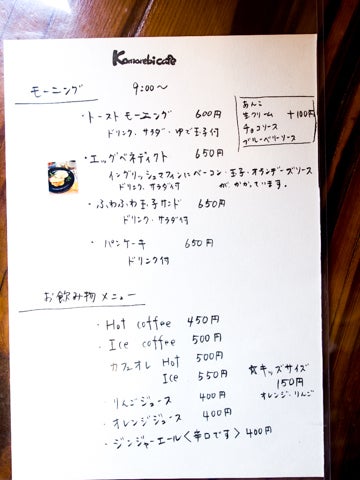 Komorebi cafe
モーニング 9:00〜
・トーストモーニング 600円
ドリンク・サラダ・ゆで玉子付
あんこ
生クリーム +100円
チョコソース
ブルーベリーソース
・エッグベネディクト 650円
イングリッシュマフィンにベーコン・玉子・オランデーズソース
がかかっています。
ドリンク、サラダ付
・ふわふわ玉子サンド 650円
ドリンク・サラダ付
・パンケーキ 650円
ドリンク付
お飲み物メニュー
・Hot coffee 450円
・Ice coffee 500円
カフェオレ Hot 500円
Ice 550円
・りんごジュース 400円
・オレンジジュース 400円
・ジンジャーエール〈辛口です〉400円
☆キッズサイズ
150円
オレンジ・りんご